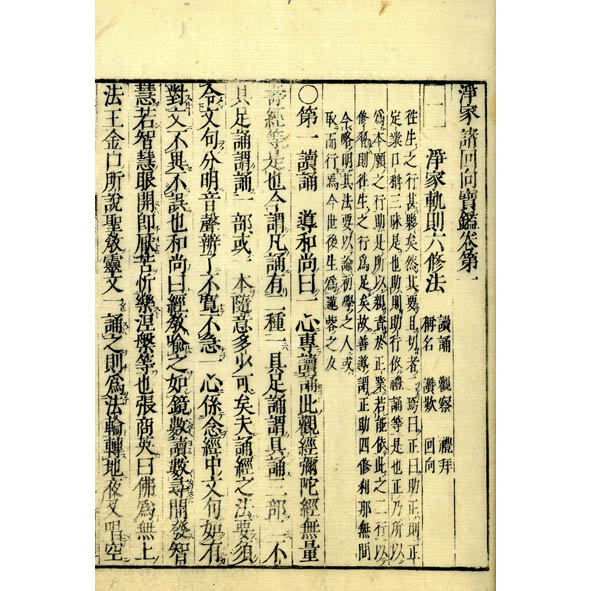 淨家諸回向寶鑑卷第一
一 淨家軌則六修法
讀誦 觀察 禮拜
稱名 讚歎 回向
往生之行甚夥矣然其要且切者二焉曰正曰助正則正
定業口稱三昧是也助則助行依禮誦等是也正乃所以
爲本願之行助是所以親資於正業若能依此之二行以
修習則往生之行爲足矣故善導謂正助四修利那無間
今略明其法要以諭初學之人或
取而行爲今世後生爲蓮之友
○第一讀誦 導和尚曰一心專讀誦此觀經彌陀經無量
壽經等是也今謂凡誦有二種一具足誦謂具誦三部二不
具足誦謂誦一部或一本隨意多少可矣夫誦經之法要須
令文句分明音聲辨了不寬不急一心係念經中文句如有
對文不異不誤也和尚曰經教喻之如鏡數讀數尋開發智
慧若智慧眼開即厭苦忻樂涅槃等也張商英曰佛爲無上
法王金口所說聖教靈文一誦之則爲法輪轉地夜叉唱空